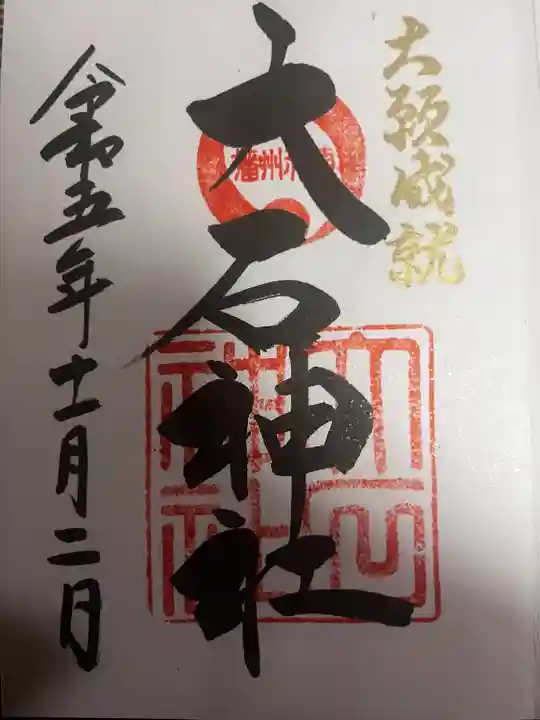 大願成就
大石神社
播州赤穂
大石神社
令和五年十一月二日